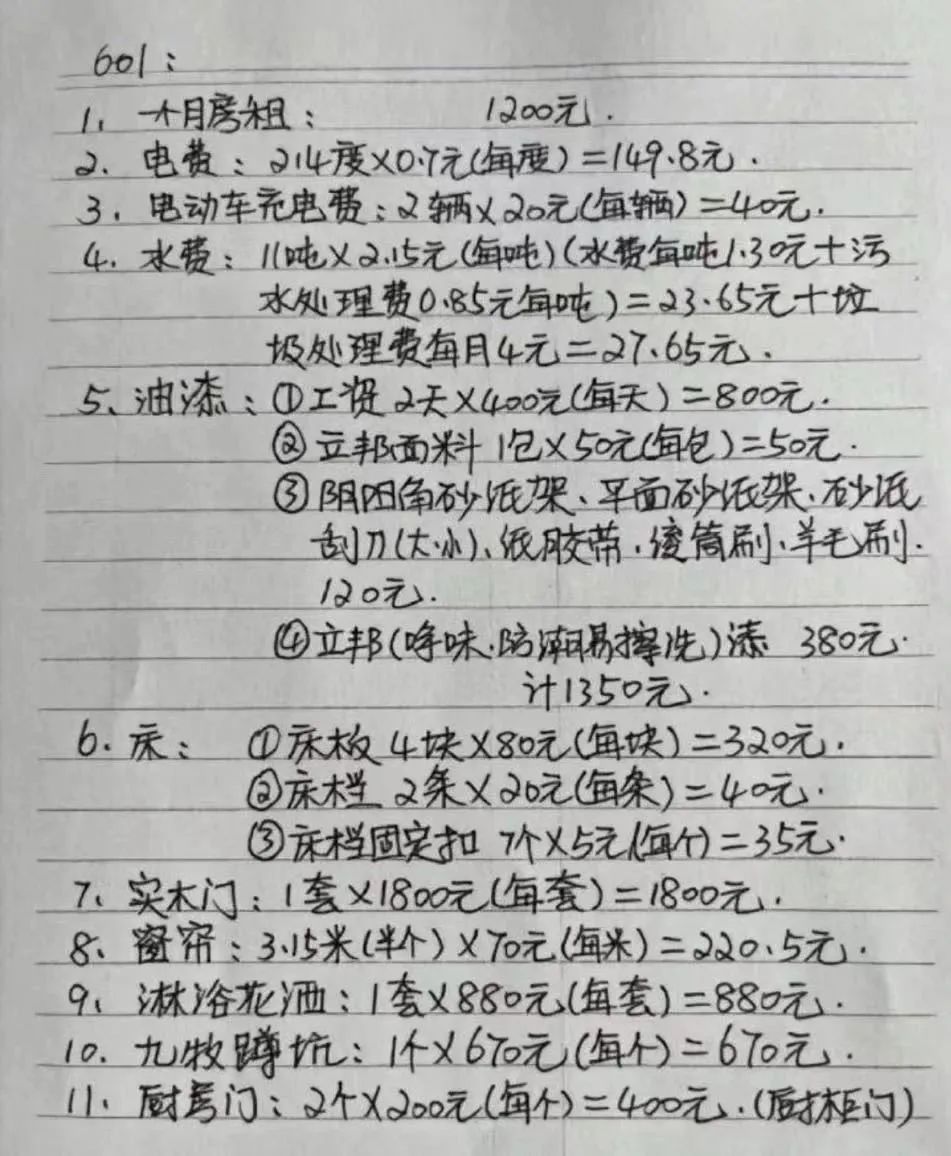 601：
1、一个月房租：1200元.
2、电费：214度×0.7元(每度)=149.8元.
3、电动车充电费：2辆×20元(每辆)=40元.
4、水费：11吨×2.15元(每吨)(水费每吨1.30元+污
水处理费0.85元每吨)=23.65元+垃
圾处理费每月4元=27.65元.
5、油漆：①工资 2天×400元(每天)=800元.
②立邦面料 1包×50元(每包)=50元.
③阴阳角砂纸架、平面砂纸架、砂纸
刮刀(大、小)、纸胶带、滚筒刷、羊毛刷.
120元.
④立邦(净味.防潮易擦洗)漆 380元.
计1350元.
6.床：①床板 4块×80元(每块)=320元.
②床档 2条×20元(每条)=40元.
③床档固定扣 7个×5元(每个)=35元.
7、实木门：1套×1800元(每套)=1800元.
8、窗帘：3.15米(半个)×70元(每米)=220.5元.
9、淋浴花洒：1套×880元(每套)=880元.
10.九牧蹲坑：1个×670元(每个)=670元.
11.厨房门：2个×200元(每个)=400元.(厨柜门)